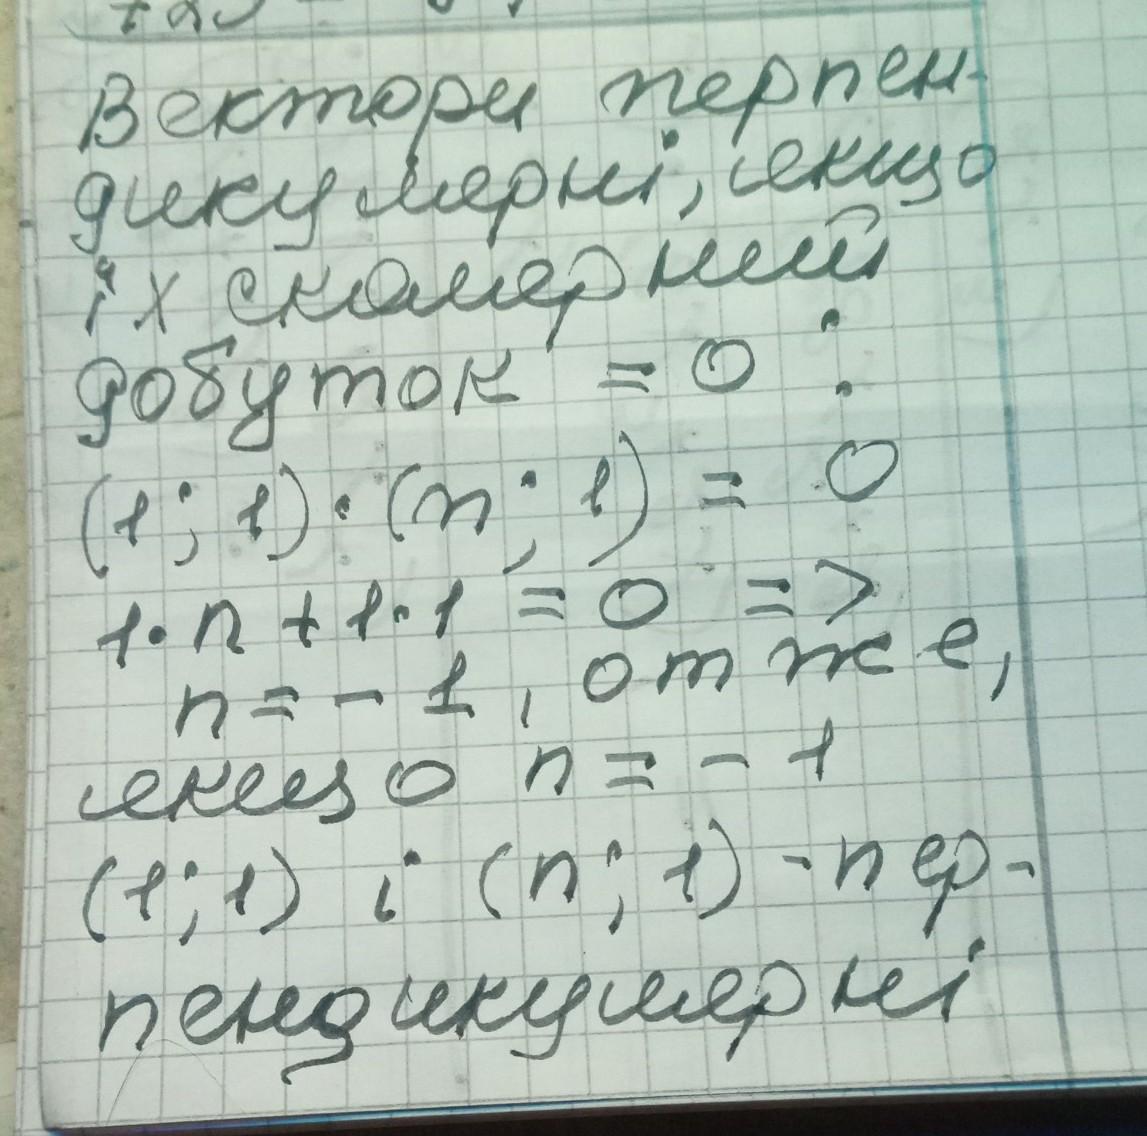 Вектори перпен-
дикулярні, якщо
їх скалярний
добуток = 0 :
(1; 1) · (n; 1) = 0
1·n + 1·1 = 0 =>
n = - 1, отже,
якщо n = - 1
(1; 1) і (n; 1) - пер-
пендикулярні